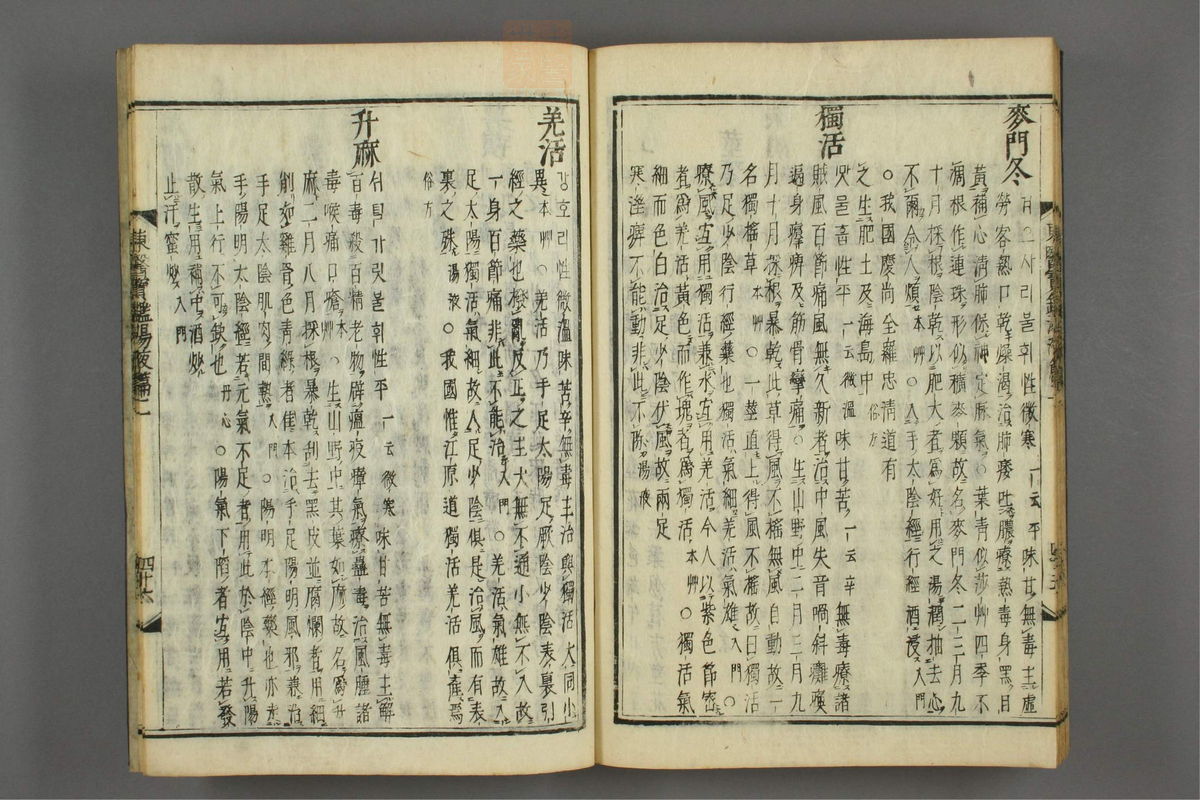 麥門冬
겨으사리불휘性微寒一云平味甘無毒主虛
勞客熱口乾燥渴治肺痿吐膿療熱毒身黑目
黃補心淸肺保神定脈氣○葉靑似莎艸四季不
凋根作連珠形似穬麥顆故名麥門冬二三月九
十月採根陰乾以肥大者爲好用之湯潤抽去心
不爾令人煩本艸○入手太陰經行經酒浸入門
○我國慶尙全羅忠淸道有
之生肥土及海島中俗方
獨活
둘흡性平一云微溫味甘苦一云辛無毒療諸
賊風百節痛風無久新者治中風失音喎斜癱瘓
遍身㿏痺及筋骨攣痛○生山野中二月三月九
月十月採根暴乾此草得風不搖無風自動故一
名獨搖草本艸○一莖直上得風不搖故曰獨活
乃足少陰行經藥也獨活氣細羌活氣雄入門○
療風宜用獨活兼水宜用羌活今人以紫色節密
者爲羌活黃色而作塊者爲獨活本艸○獨活氣
細而色白治足少陰伏風故兩足
寒濕痺不能動非此不除湯液
羌活
강호리性微溫味苦辛無毒主治與獨活大同小
異本艸○羌活乃手足太陽足厥陰少陰表裏引
經之藥也撥亂反正之主大無不通小無不入故
一身百節痛非此不能治入門○羌活氣雄故入
足太陽獨活氣細故入足少陰俱是治風而有表
裏之殊湯液○我國惟江原道獨活羌活俱產焉
俗方
升麻
불휘性平一云微寒味甘苦無毒主解
百毒殺百精老物辟瘟疫瘴氣療蠱毒治風腫諸
毒喉痛口瘡本艸○生山野中其葉如麻故名爲升
麻二月八月採根暴乾刮去黑皮並腐爛者用細
削如雞骨色靑綠者佳本治手足陽明風邪兼治
手足太陰肌肉間熱入門○陽明本經藥也亦走
手陽明太陰經若元氣不足者用此於陰中升陽
氣上行不可缺也丹心○陽氣下陷者宜用若發
散生用補中酒炒
止汗蜜炒入門
東醫寶鑑湯液篇二